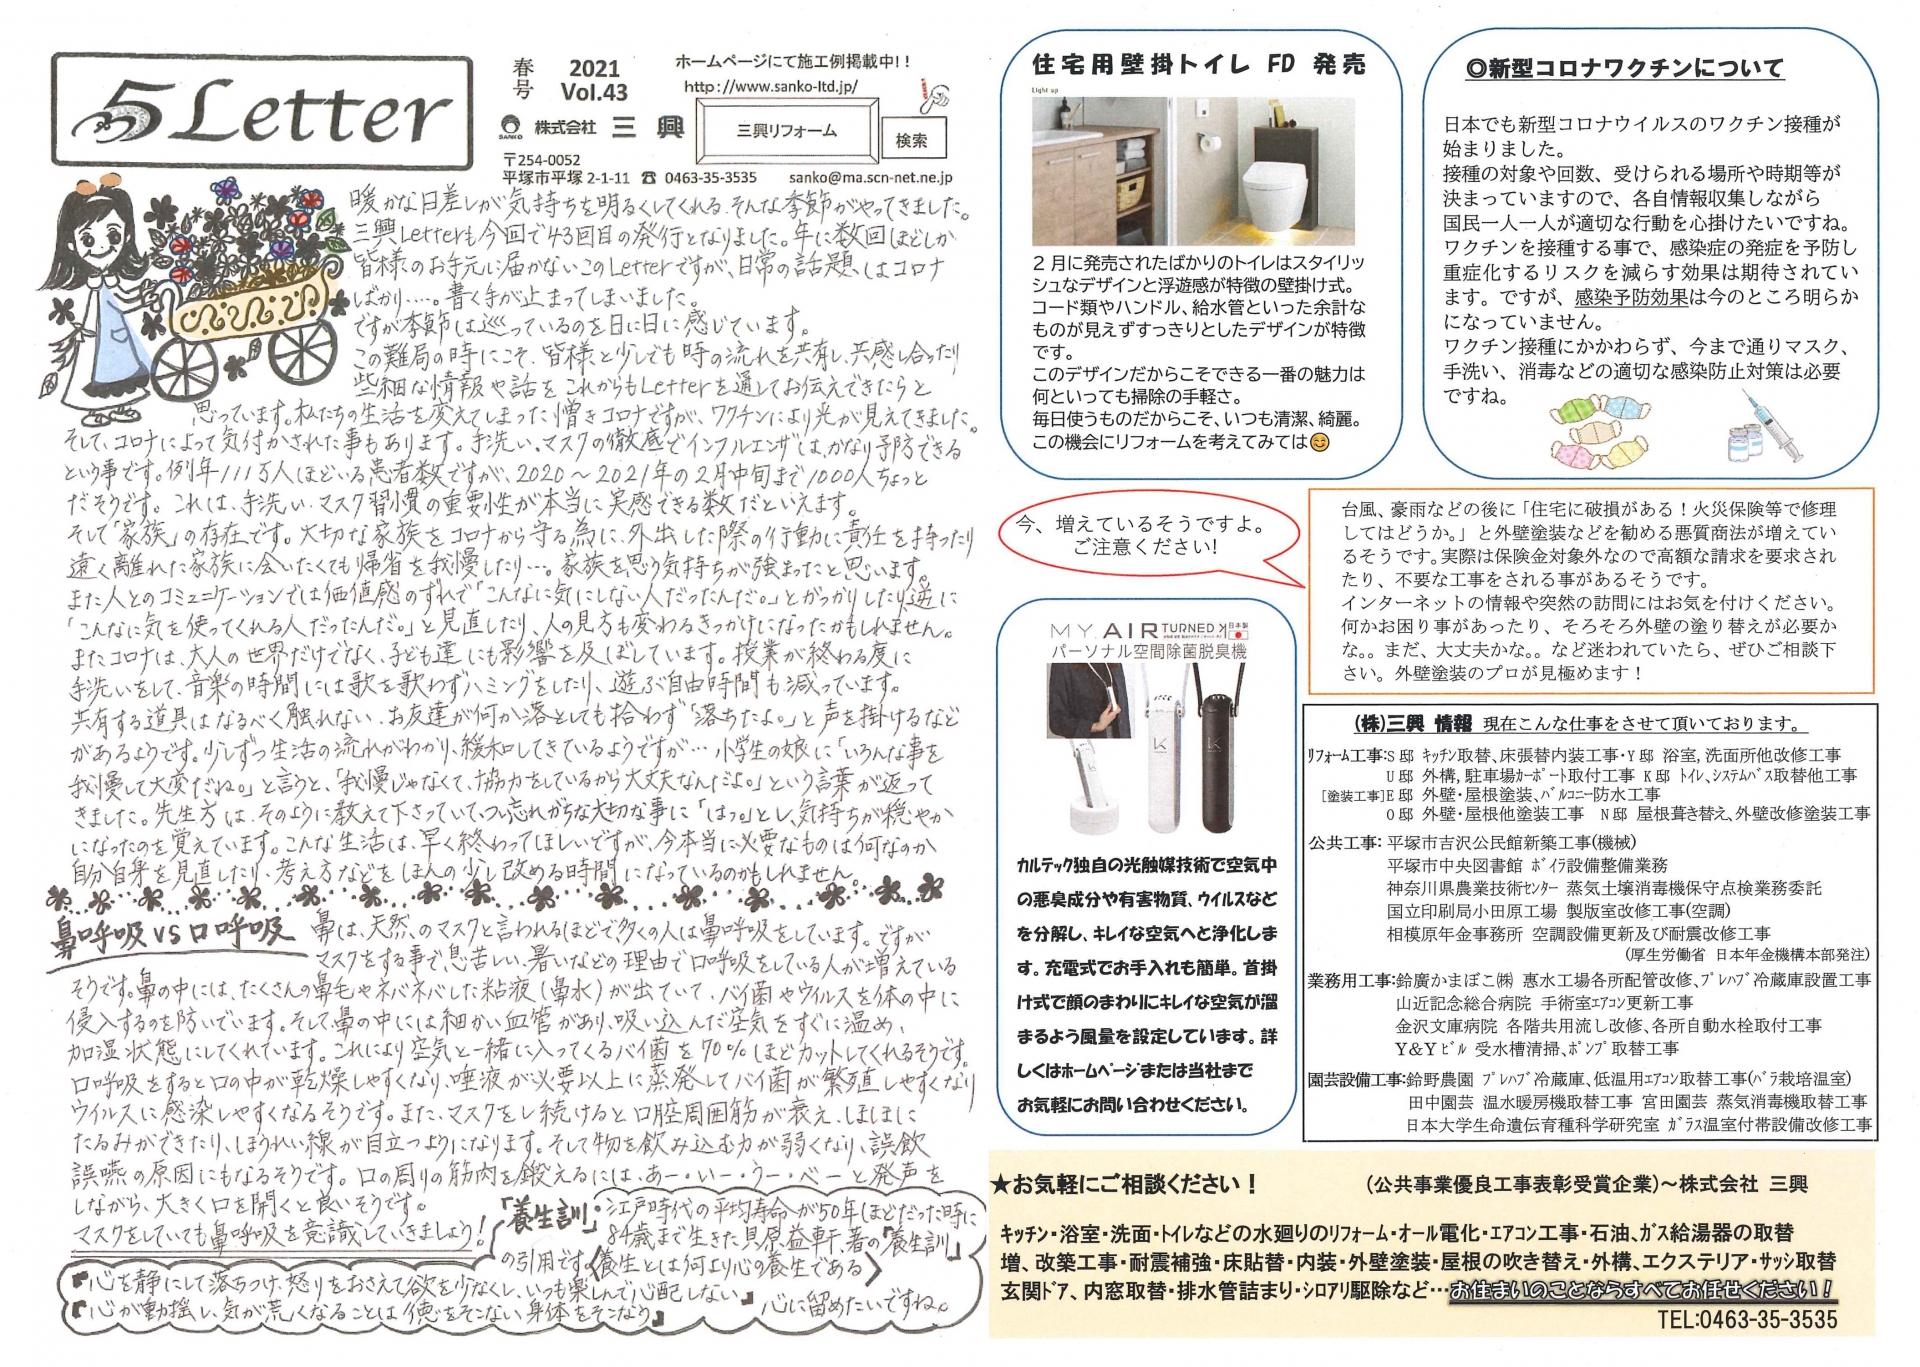 5 Letter
春号
2021
Vol.43
ホームページにて施工例掲載中!!
http://www.sanko-ltd.jp/
SANKO 株式会社 三興
三興リフォーム
検索
〒254-0052
平塚市平塚 2-1-11 ☎ 0463-35-3535 sanko@ma.scn-net.ne.jp
暖かな日差しが気持ちを明るくしてくれる、そんな季節がやってきました。
三興Letterも今回で43回目の発行となりました。年に数回ほどしか
皆様のお手元に届かないこのLetterですが、日常の話題はコロナ
ばかり‥‥。書く手が止まってしまいました。
ですが季節は巡っているのを日に日に感じています。
この難局の時にこそ、皆様と少しでも時の流れを共有し、共感し合ったり
些細な情報や話をこれからもLetterを通してお伝えできたらと
思っています。私たちの生活を変えてしまった憎きコロナですが、ワクチンにより光が見えてきました。
そして、コロナによって気付かされた事もあります。手洗い、マスクの徹底でインフルエンザは、かなり予防できる
という事です。例年111万人ほどいる患者数ですが、2020～2021年の2月中旬まで1000人ちょっと
だそうです。これは、手洗い、マスク習慣の重要性が本当に実感できる数だといえます。
そして「家族」の存在です。大切な家族をコロナから守る為に、外出した際の行動に責任を持ったり
遠く離れた家族に会いたくても帰省を我慢したり…。家族を思う気持ちが強まったと思います。
また人とのコミュニケーションでは価値感のずれで「こんなに気にしない人だったんだ。」とがっかりしたり、逆に
「こんなに気を使ってくれる人だったんだ。」と見直したり、人の見方も変わるきっかけになったかもしれません。
またコロナは、大人の世界だけでなく、子ども達にも影響を及ぼしています。授業が終わる度に
手洗いをして、音楽の時間には歌を歌わずハミングをしたり、遊ぶ自由時間も減っています。
共有する道具はなるべく触れない、お友達が何か落としても拾わず「落ちたよ。」と声を掛けるなど
があるようです。少しずつ生活の流れがわかり、緩和してきているようですが… 小学生の娘に「いろんな事を
我慢して大変だね。」と言うと、「我慢じゃなくて、協力をしているから大丈夫なんだよ。」という言葉が返って
きました。先生方は、そのように教えて下さっていて、つい忘れがちな大切な事に「はっ。」とし、気持ちが穏やか
になったのを覚えています。こんな生活は、早く終わってほしいですが、今本当に必要なものは何なのか
自分自身を見直したり、考え方などをほんの少し改める時間になっているのかもしれません。
鼻呼吸 VS 口呼吸
鼻は、天然のマスクと言われるほどで多くの人は鼻呼吸をしています。ですが
マスクをする事で、息苦しい、暑いなどの理由で口呼吸をしている人が増えている
そうです。鼻の中には、たくさんの鼻毛やネバネバした粘液(鼻水)が出ていて、バイ菌やウイルスを体の中に
侵入するのを防いでいます。そして鼻の中には細かい血管があり、吸い込んだ空気をすぐに温め、
加湿状態にしてくれています。これにより空気と一緒に入ってくるバイ菌を70%ほどカットしてくれるそうです。
口呼吸をすると口の中が乾燥しやすくなり、唾液が必要以上に蒸発してバイ菌が繁殖しやすくなり
ウイルスに感染しやすくなるそうです。また、マスクをし続けると口腔周囲筋が衰え、しまほに
たるみができたり、ほうれい線が目立つようになります。そして物を飲み込む力が弱くなり、誤飲
誤嚥の原因にもなるそうです。口の周りの筋肉を鍛えるには、あー・いー・うー・べーと発声を
しながら、大きく口を開くと良いそうです。
マスクをしていても鼻呼吸を意識していきましょう!
「養生訓」:江戸時代の平均寿命が50年ほどだった時に
84歳まで生きた貝原益軒、著の「養生訓」
の引用です。〈養生とは何より心の養生である〉
『心を静にして落ちつけ、怒りをおさえて欲を少なくし、いつも楽しんで心配しない』
『心が動揺し、気が荒くなることは徳をそこない身体をそこなう』
心に留めたいですね。
住宅用壁掛トイレ FD 発売
Light up
2 月に発売されたばかりのトイレはスタイリッ
シュなデザインと浮遊感が特徴の壁掛け式。
コード類やハンドル、給水管といった余計な
ものが見えずすっきりとしたデザインが特徴
です。
このデザインだからこそできる一番の魅力は
何といっても掃除の手軽さ。
毎日使うものだからこそ、いつも清潔、綺麗。
この機会にリフォームを考えてみては😊
◎新型コロナワクチンについて
日本でも新型コロナウイルスのワクチン接種が
始まりました。
接種の対象や回数、受けられる場所や時期等が
決まっていますので、各自情報収集しながら
国民一人一人が適切な行動を心掛けたいですね。
ワクチンを接種する事で、感染症の発症を予防し
重症化するリスクを減らす効果は期待されてい
ます。ですが、感染予防効果は今のところ明らか
になっていません。
ワクチン接種にかかわらず、今まで通りマスク、
手洗い、消毒などの適切な感染防止対策は必要
ですね。
今、増えているそうですよ。
ご注意ください!
台風、豪雨などの後に「住宅に破損がある!火災保険等で修理
してはどうか。」と外壁塗装などを勧める悪質商法が増えてい
るそうです。実際は保険金対象外なので高額な請求を要求され
たり、不要な工事をされる事があるそうです。
インターネットの情報や突然の訪問にはお気を付けください。
何かお困り事があったり、そろそろ外壁の塗り替えが必要か
な。。まだ、大丈夫かな。。など迷われていたら、ぜひご相談下
さい。外壁塗装のプロが見極めます!
MY. AIR TURNED K 日本製
パーソナル空間除菌脱臭機
カルテック独自の光触媒技術で空気中
の悪臭成分や有害物質、ウイルスなど
を分解し、キレイな空気へと浄化しま
す。充電式でお手入れも簡単。首掛
け式で顔のまわりにキレイな空気が溜
まるよう風量を設定しています。詳
しくはホームページまたは当社まで
お気軽にお問い合わせください。
(株)三興 情報 現在こんな仕事をさせて頂いております。
リフォーム工事:S 邸 キッチン取替、床張替内装工事・Y 邸 浴室,洗面所他改修工事
U 邸 外構,駐車場カーポート取付工事 K 邸 トイレ,システムバス取替他工事
[塗装工事]E 邸 外壁・屋根塗装、バルコニー防水工事
O 邸 外壁・屋根他塗装工事 N 邸 屋根葺き替え、外壁改修塗装工事
公共工事: 平塚市吉沢公民館新築工事(機械)
平塚市中央図書館 ボイラ設備整備業務
神奈川県農業技術センター 蒸気土壌消毒機保守点検業務委託
国立印刷局小田原工場 製版室改修工事(空調)
相模原年金事務所 空調設備更新及び耐震改修工事
(厚生労働省 日本年金機構本部発注)
業務用工事:鈴廣かまぼこ㈱ 惠水工場各所配管改修、プレハブ冷蔵庫設置工事
山近記念総合病院 手術室エアコン更新工事
金沢文庫病院 各階共用流し改修、各所自動水栓取付工事
Y&Yビル 受水槽清掃、ポンプ取替工事
園芸設備工事:鈴野農園 プレハブ冷蔵庫、低温用エアコン取替工事(バラ栽培温室)
田中園芸 温水暖房機取替工事 宮田園芸 蒸気消毒機取替工事
日本大学生命遺伝育種科学研究室 ガラス温室付帯設備改修工事
★お気軽にご相談ください! (公共事業優良工事表彰受賞企業)～株式会社 三興
キッチン・浴室・洗面・トイレなどの水廻りのリフォーム・オール電化・エアコン工事・石油、ガス給湯器の取替
増、改築工事・耐震補強・床貼替・内装・外壁塗装・屋根の吹き替え・外構、エクステリア・サッシ取替
玄関ドア、内窓取替・排水管詰まり・シロアリ駆除など…お住まいのことならすべてお任せください!
TEL:0463-35-3535